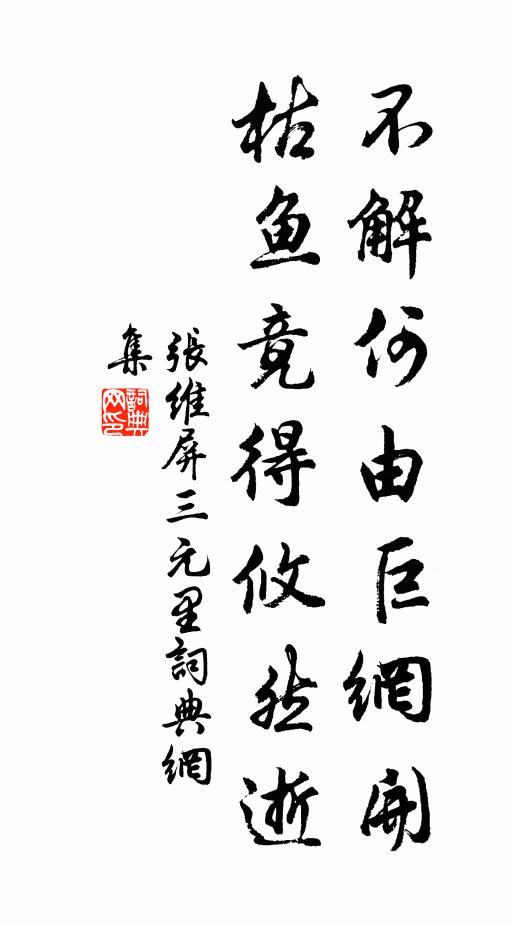 不解何由巨網開
枯鱼竟得攸然逝
張維屏三元里詞典網
集
詞典网印